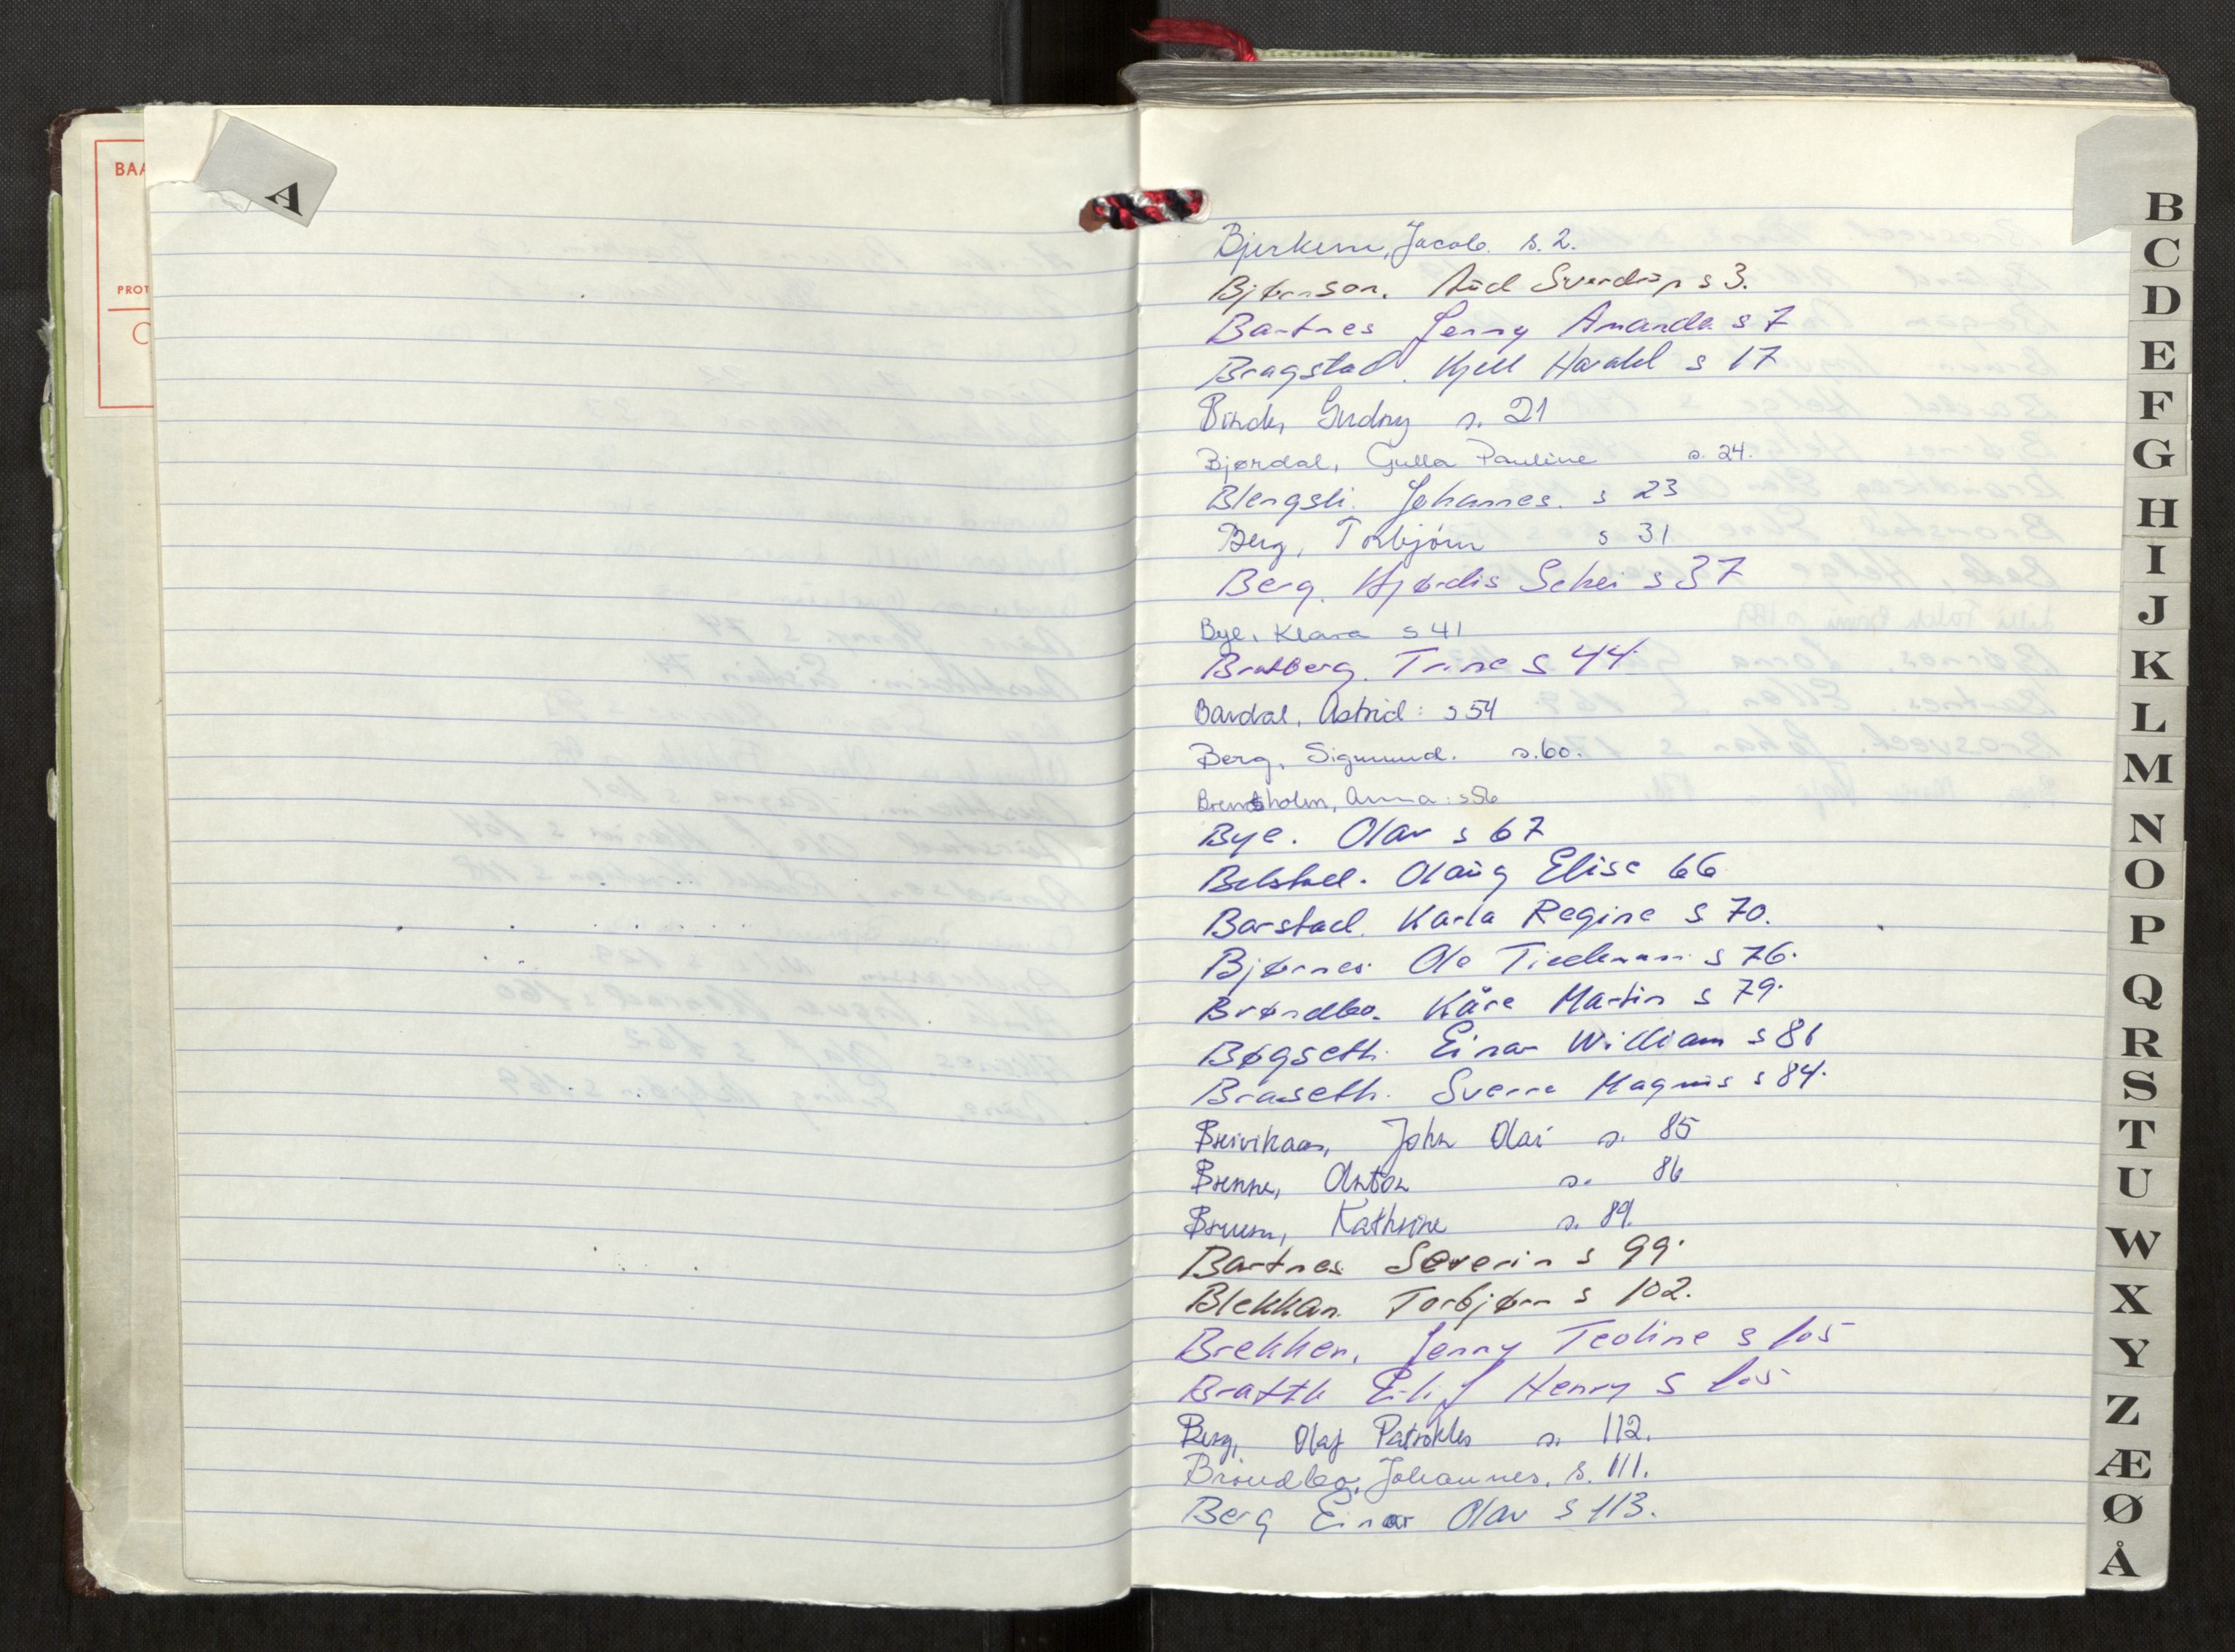 BAA
PROT
A
Bjerkem, Jacob. s. 2.
Bjørnson. Aud Sverdrup s 3.
Bartnes Jenny Amanda s 7
Bragstad. Kjell Harald s 17
Binde, Gudny s. 21
Bjørdal, Gulla Pauline s. 24.
Blengsli. Johannes. s 23
Berg, Torbjørn s 31
Berg. Hjørdis Schei s 37
Bye, Klara s 41
Bratberg. Trine s 44
Bardal, Astrid: s 54
Berg, Sigmund. s. 60.
holm, Anna: s 56
Bye. Olav s 67
Olaug Elise 66
Barstad. Karla Regine s 70.
Bjørnes. Ole Tiedemann s 76.
Brøndbo. Kåre Martin s 79.
Bøgseth. Einar William s 81
Braseth. Sverre Magnus s 84.
Breivikaas, John Olai s. 85
Brenne, Anton s. 86
Bruem, Kathrine s. 89.
Bartnes Severin s 99.
Blekkan. Torbjørn s 102.
Brekken, Jenny Teoline s 105
Brattli Eilif Henry s 105
Berg, Olaf Patrokles s. 112.
Brøndbo, Johannes. s. 111.
Berg Einar Olav s 113.
B
C
D
E
F
G
H
I
J
K
L
M
N
O
P
Q
R
S
T
U
W
X
Y
Z
Æ
Ø
Å